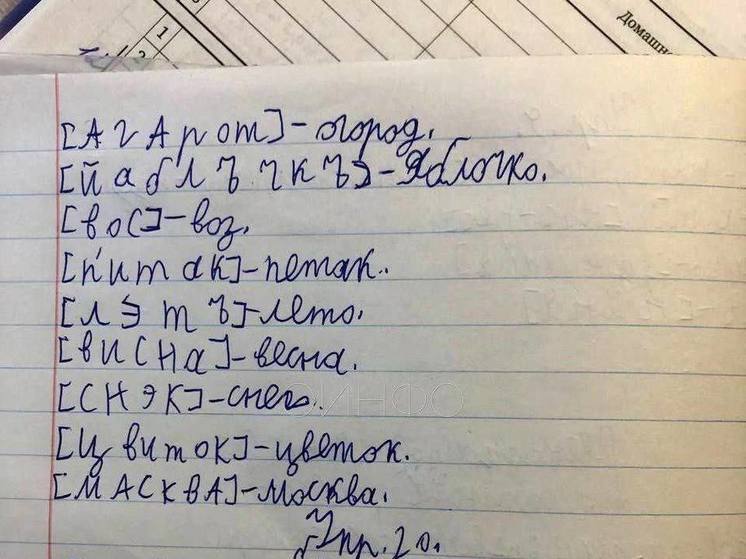 1
2
Домашн
[АгАрот]-огород.
[йаблъчкъ]-Яблочко.
[вос]-воз.
[п'итак]-петак.
[лэтъ]-лето.
[висна]-весна.
[снэк]-снег.
ИНФО
[цвиток]-цветок.
[МАСКВА]-Москва.
Упр. 20.